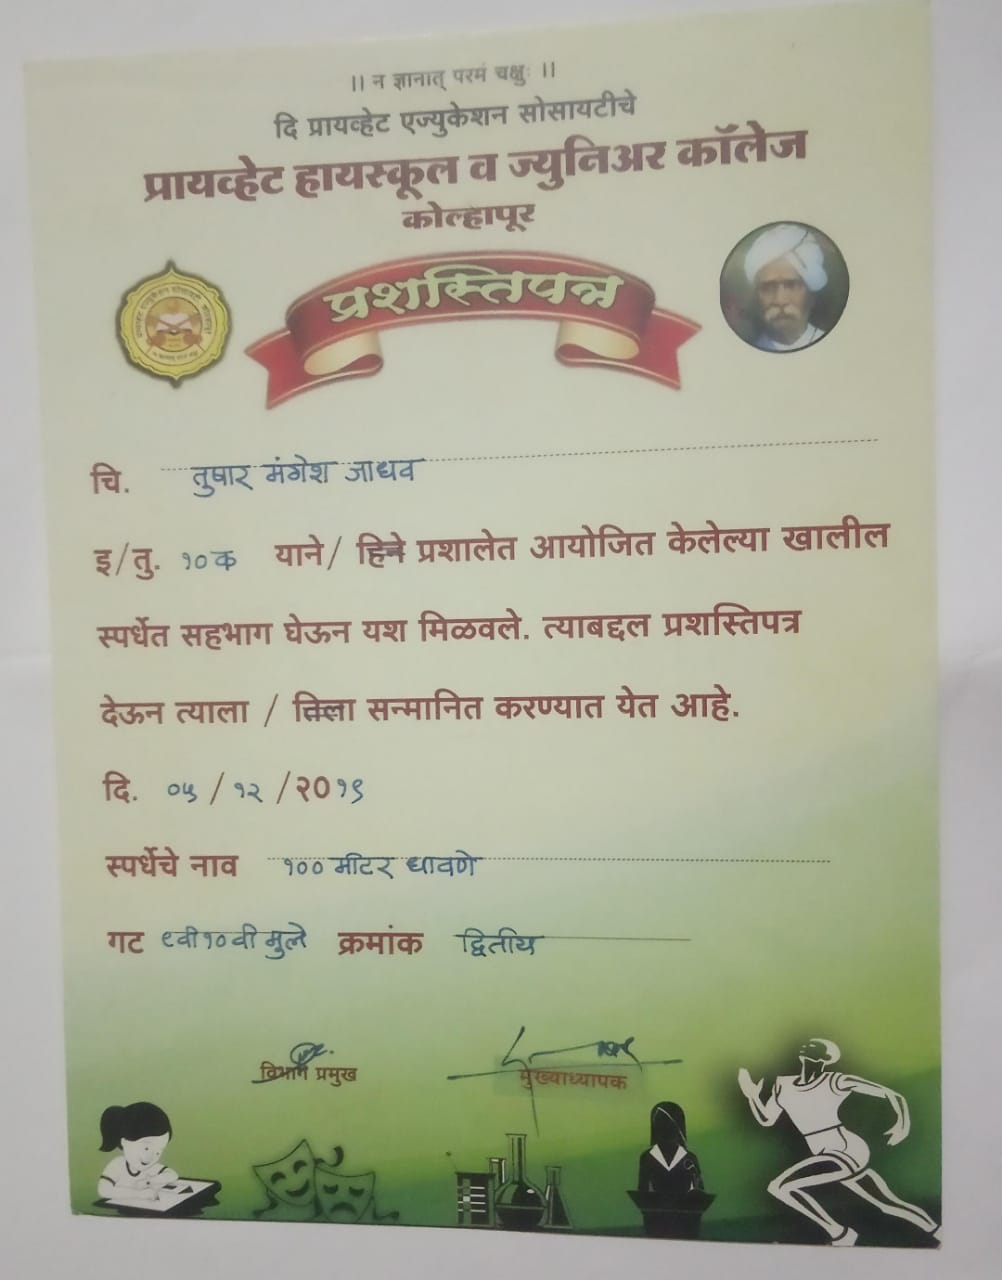 ।। न ज्ञानात् परमं चक्षुः ।।
दि प्रायव्हेट एज्युकेशन सोसायटीचे
प्रायव्हेट हायस्कूल व ज्युनिअर कॉलेज
कोल्हापूर
प्रशस्तिपत्र
चि. तुषार मंगेश जाधव
इ/तु. १०क याने/ हिने प्रशालेत आयोजित केलेल्या खालील
स्पर्धेत सहभाग घेऊन यश मिळवले. त्याबद्दल प्रशस्तिपत्र
देऊन त्याला / तिला सन्मानित करण्यात येत आहे.
दि. ०५ / १२ / २०१९
स्पर्धेचे नाव १०० मीटर धावणे
गट ९वी१०वी मुले क्रमांक द्वितीय
विभाग प्रमुख मुख्याध्यापक